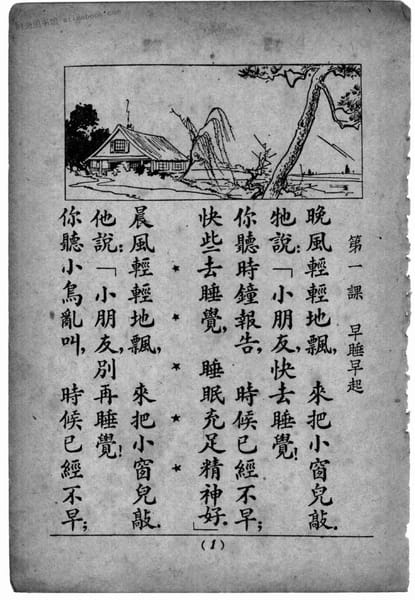 第一課 早睡早起
晚風輕輕地飄, 來把小窗兒敲.
牠說:「小朋友,快去睡覺!
你聽時鐘報告, 時候已經不早;
快些去睡覺, 睡眠充足精神好.」
★ ★ ★ ★ ★
晨風輕輕地飄, 來把小窗兒敲.
他說:「小朋友,別再睡覺!
你聽小鳥亂叫, 時候已經不早;
(1)